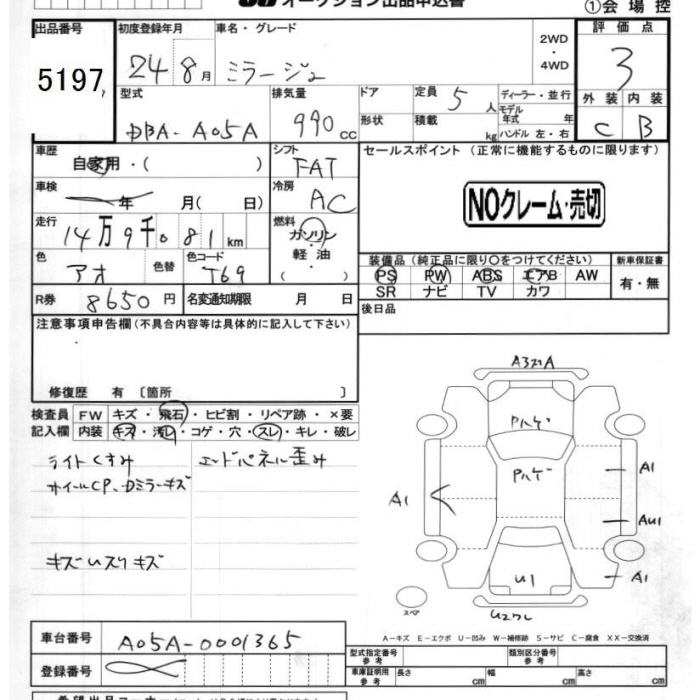 オークション出品申込書
①会場控
出品番号
5197
初度登録年月
24 8月
車名・グレード
ミラージュ
2WD
・
4WD
評価点
3
型式
DBA-A05A
排気量
990cc
ドア
形状
定員 5人
積載 kg
ディーラー・並行
モデル
年式 年
ハンドル 左・右
外装 内装
C B
車歴 自家用・( )
シフト
FAT
セールスポイント (正常に機能するものに限ります)
車検 年 月( 日)
冷房
AC
NOクレーム・売切
走行 14万9千081km
燃料
ガソリン
・
軽油
( )
色 アオ
色替
色コード
T69
装備品(純正品に限り○をつけてください)
新車保証書
PS PW ABS エアB AW
SR ナビ TV カワ
有・無
R券 8650円
名変通知期限 月 日
後日品
注意事項申告欄(不具合内容等は具体的に記入して下さい)
修復歴 有 〔箇所 〕
検査員 FW キズ・飛石・ヒビ割・リペア跡・×要
記入欄 内装 キズ・汚レ・コゲ・穴・スレ・キレ・破レ
ライトくすみ
エンドパネル歪み
ホイールCP、Dミラーキズ
キズUスリキズ
A3スリA
Pハゲ
Pハゲ
A1
A1
AU1
U1
A1
スペア
U2ワレ
A-キズ E-エクボ U-凹み W-補修跡 S-サビ C-腐食 XX-交換済
車台番号 A05A-0001365
登録番号
型式指定番号
参考
類別区分番号
参考
車庫証明用
参考
長さ cm
幅 cm
高さ cm